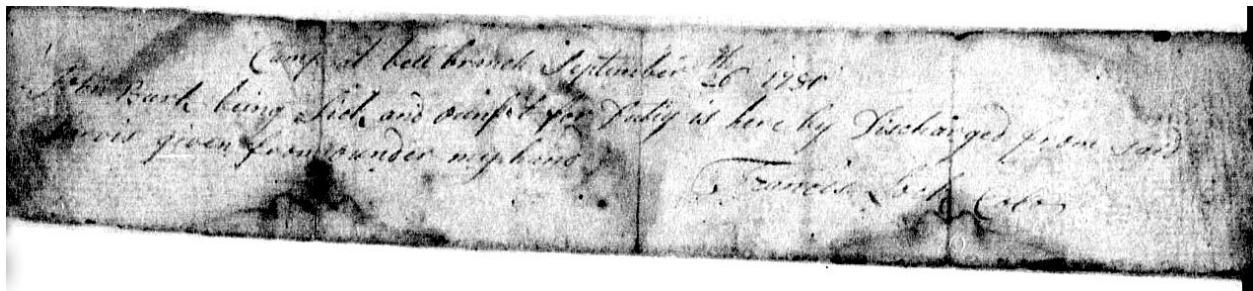 Camp at bell branch September 26th 1780
John Bark being Sick and ounfit for Dutiy is here by Discharged from said
Servis given from under my hand
Francis Lock Colo